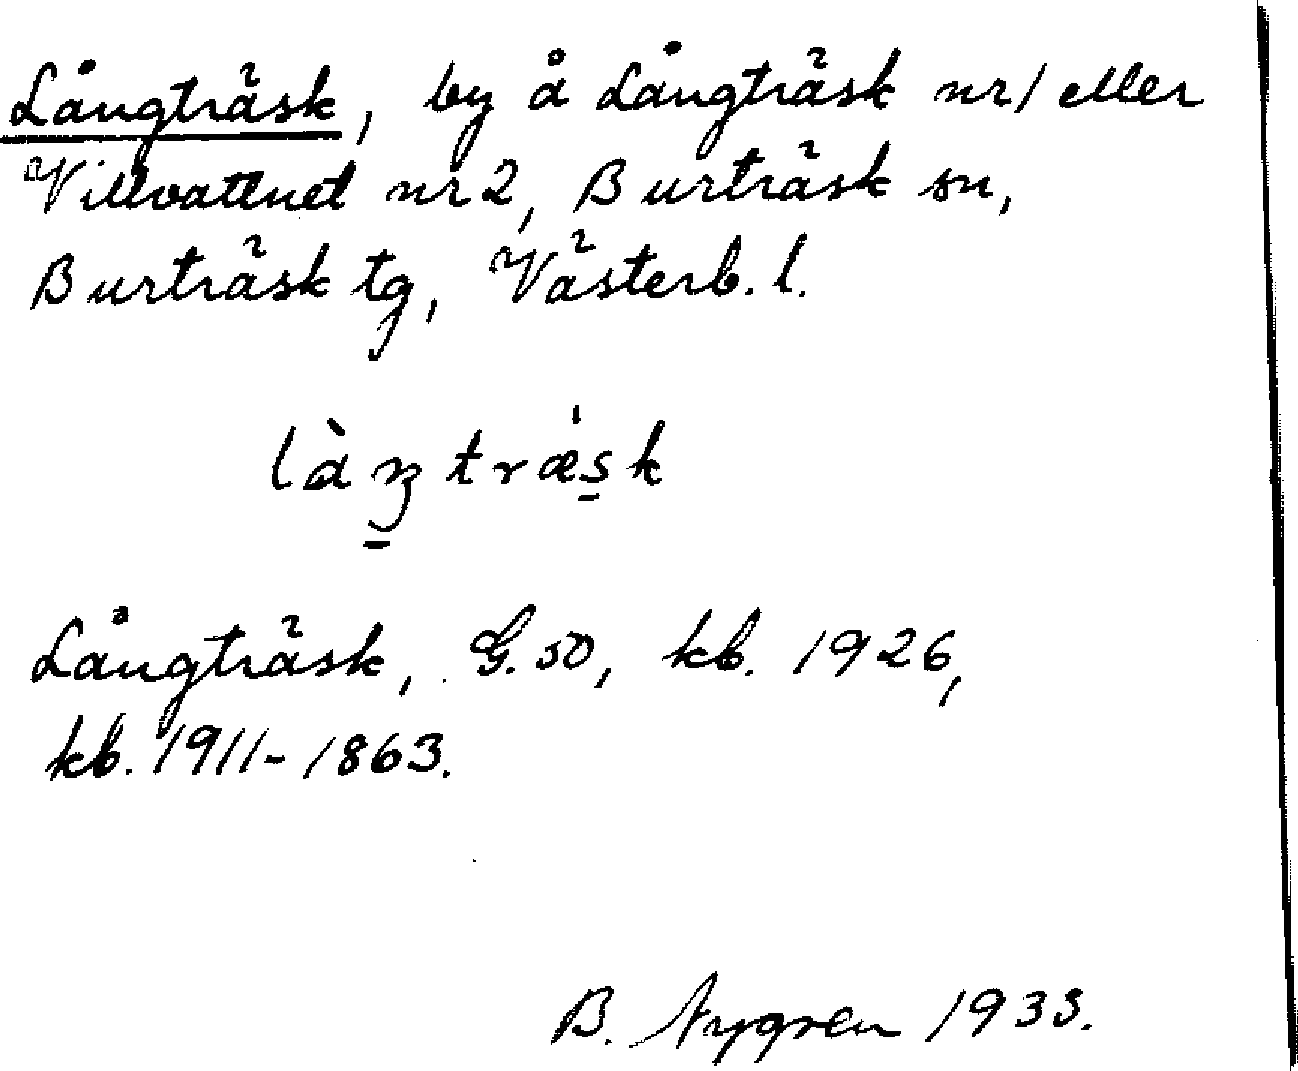 Långträsk, by å Långträsk nr 1 eller
Villvattnet nr 2, Burträsk sn,
Burträsk tg, Västerb. l.
làŋtræ̀sk
Långträsk, G. 50, kb. 1926,
kb. 1911-1863.
B. Nygren 1933.